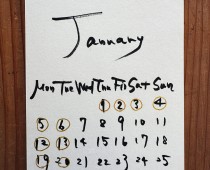 January
Mon Tue Wed Thu Fri Sat Sun
1 2 3 4
5 6 7 8 9 10 11
12 13 14 15 16 17 18
19 20 21 22 23 24 25